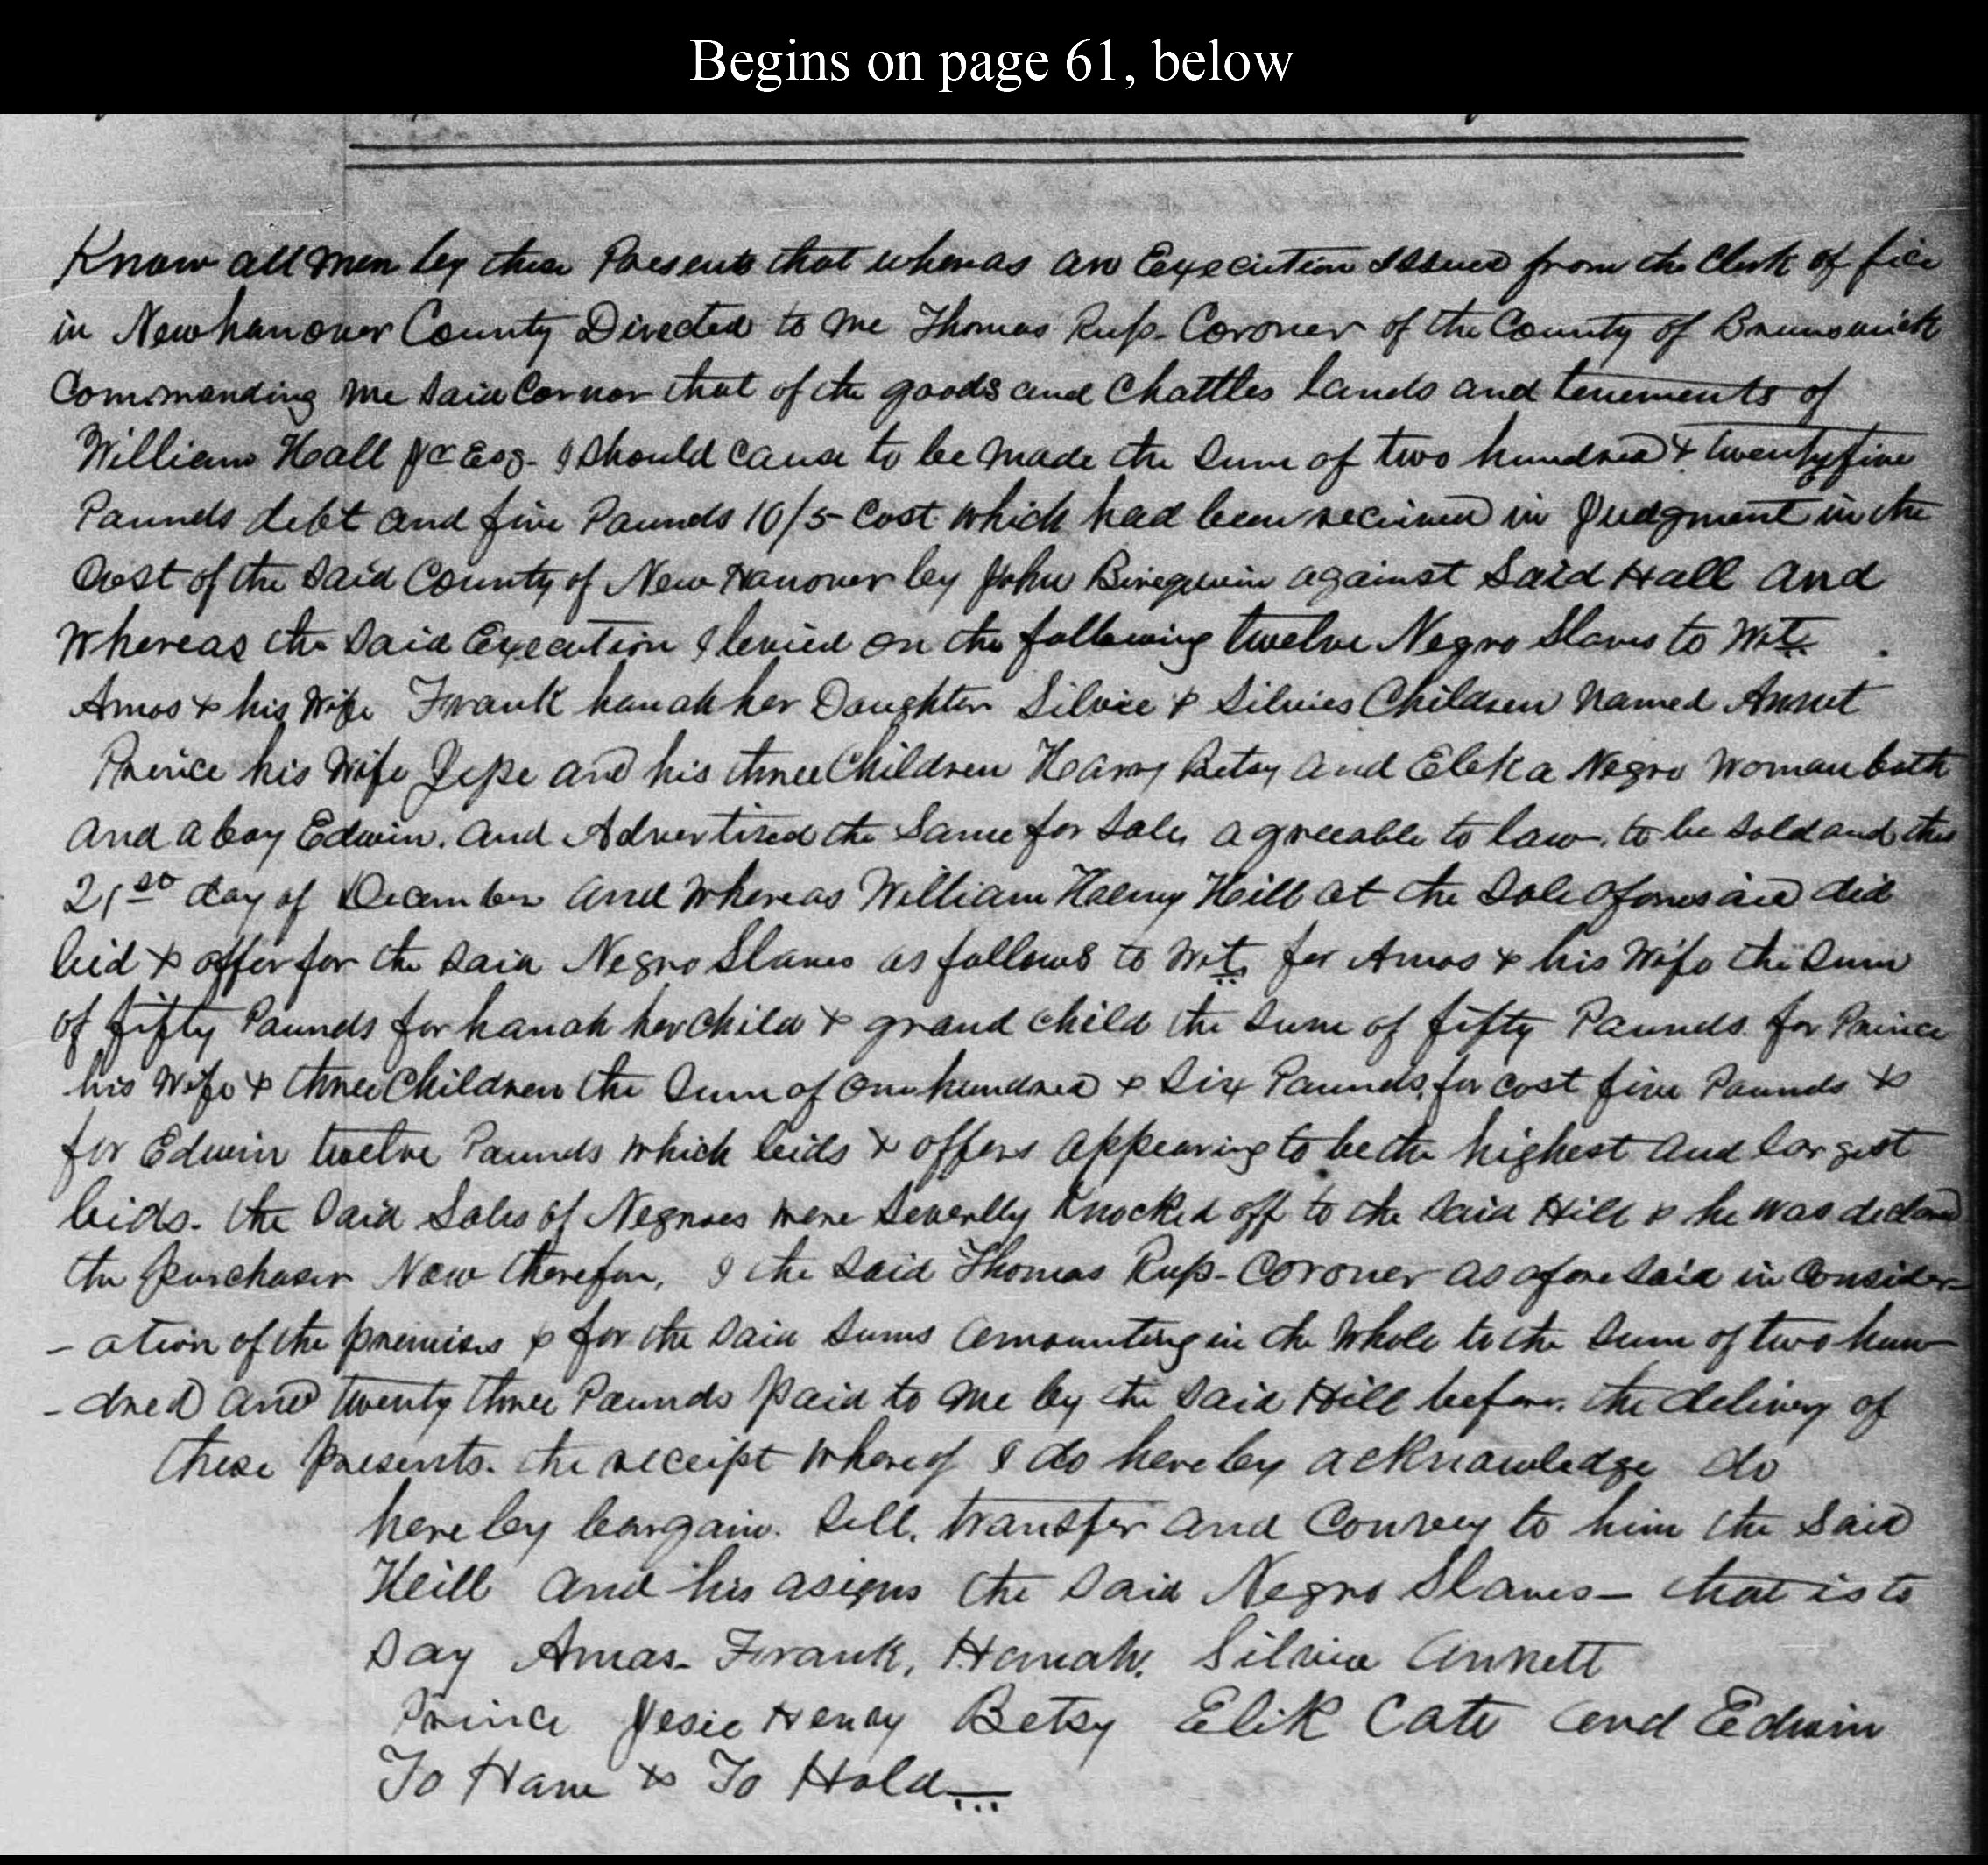 Begins on page 61, below
Know all men by these Presents that whereas an Execution Issued from the Clerk of fice
in Newhanover County Directed to me Thomas Russ- Coroner of the County of Brunswick
Commanding me said Cornor that of the goods and Chattles lands and tenements of
William Hall Jr Esq- I should cause to be made the Sum of two hundred & twenty five
Pounds debt and five Pounds 10/5- Cost which had been recieved in Judgment in the
Cost of the said County of New Hanover by John against Said Hall and
Whereas the said Execution I levied on the following twelve Negro Slaves to Wit.
Amos & his Wife Frank hanah her Daughter Silvie & Silvies Children named Annet
Prince his Wife Jesse and his three Children Harry Betsy and Elek a Negro Woman
and a boy Edwin. and Advertised the Same for Sale, agreeable to law. to be sold and this
21st day of December and Whereas William Henry Heill at the Sale aforesaid did
bid & offer for the said Negro Slaves as follows to Wit, for Amos & his Wife the Sum
of fifty Pounds for hanah her child & grand child the Sum of fifty Pounds. for Prince
his Wife & three Children the Sum of One hundred & Six Pounds, for cost five Pounds &
for Edwin twelve Pounds which bids & offers appearing to be the highest and largest
bids. the said Sales of Negroes were Severlly Knocked off to the said Hill & he was declared
the purchaser Now therefore, I the Said Thomas Russ- Coroner as aforesaid in Consider-
- ation of the premises & for the said Sums amounting in the Whole to the Sum of two hun-
- dred and twenty three Pounds paid to me by the Said Hill before. the delivery of
these presents. the receipt whereof I do hereby acknowledge do
hereby bargain. Sell. transfer and Convey to him the said
Heill and his asigns the said Negro Slaves- that is to
Say Amas- Frank, Hanah, Silvia Annett
Prince Jesie Henry Betsy Elik Cate and Edwin
To Have & To Hold...